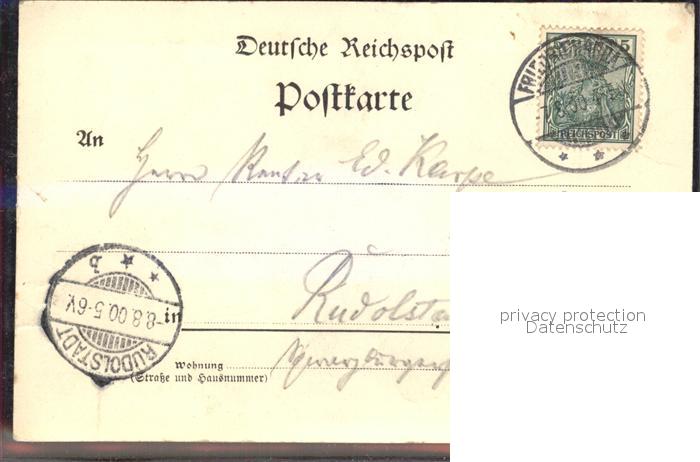 Deutsche Reichspost
5
Postkarte
FRIEDRICHRODA
8.00
REICHSPOST
An
Herrn Kantor Ed. Karpe
privacy protection
Datenschutz
b
in
Rudolsta
-8.8.00.5-6V.
RUDOLSTADT
Wohnung
(Straße und Hausnummer)